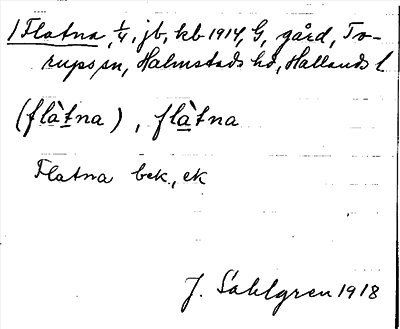 1 Flatna, 1/4, jb, kb 1914, G, gård, To-
rups sn, Halmstads hd, Hallands l
(flàtna), flàtna
Flatna bek., ek
J. Sahlgren 1918